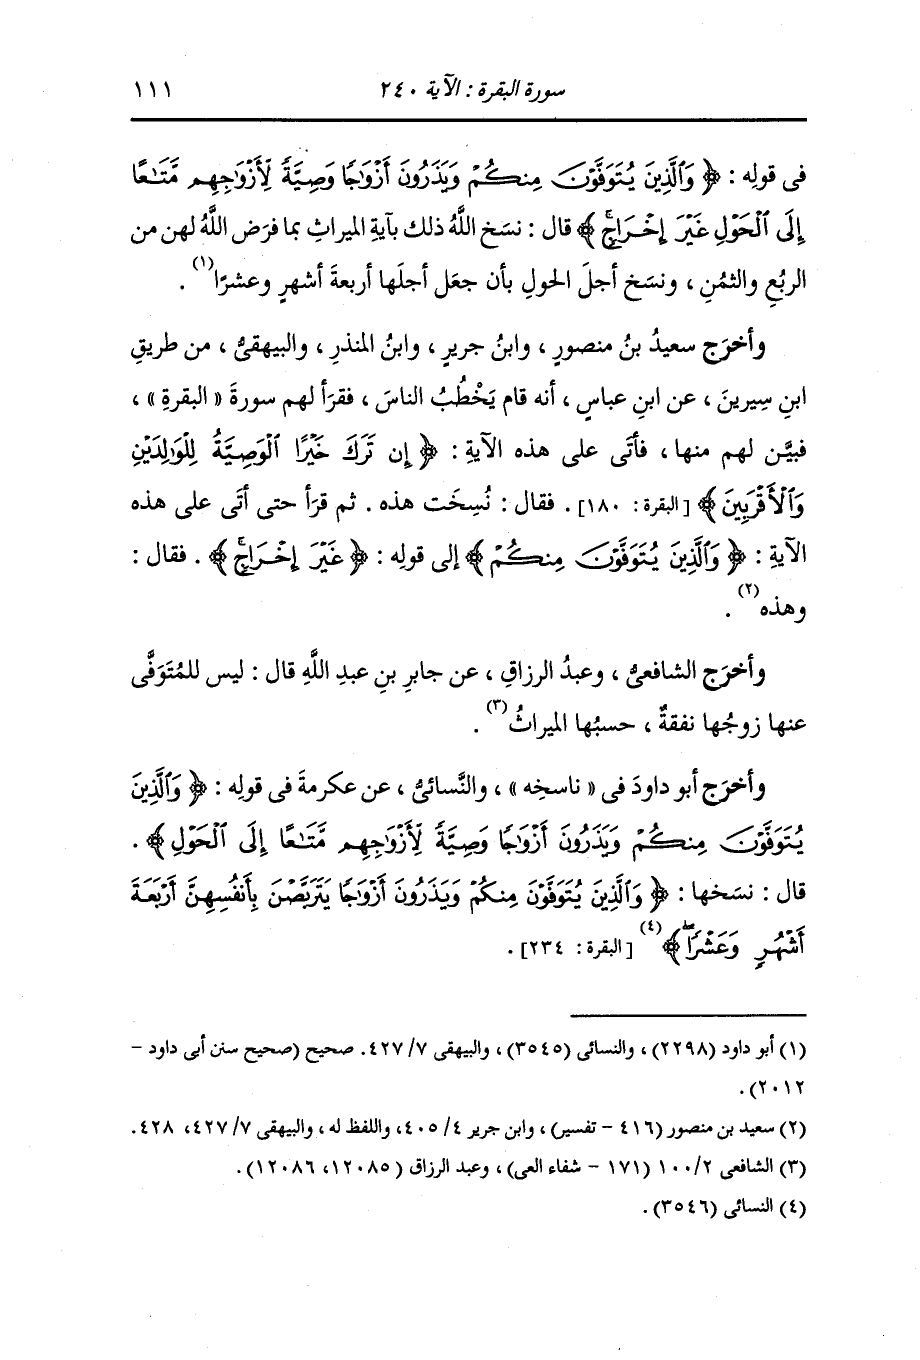 سورة البقرة : الآية ٢٤٠
١١١
فى قولِه : ﴿ وَٱلَّذِينَ يُتَوَفَّوْنَ مِنكُمْ وَيَذَرُونَ أَزْوَٰجًا وَصِيَّةً لِّأَزْوَٰجِهِم مَّتَـٰعًا
إِلَى ٱلْحَوْلِ غَيْرَ إِخْرَاجٍ ﴾ قال : نسَخ اللَّهُ ذلك بآيةِ الميراثِ بما فرَض اللَّهُ لهن من
الربُعِ والثمُنِ ، ونسَخ أجلَ الحولِ بأن جعَل أجلَها أربعةَ أشهرٍ وعشرًا(١) .
وأخرَج سعيدُ بنُ منصورٍ ، وابنُ جريرٍ ، وابنُ المنذرِ ، والبيهقىُّ ، من طريقِ
ابنِ سِيرينَ ، عن ابنِ عباسٍ ، أنه قام يَخْطُبُ الناسَ ، فقرَأ لهم سورةَ « البقرةِ » ،
فبيَّن لهم منها ، فأتَى على هذه الآيةِ : ﴿ إِن تَرَكَ خَيْرًا ٱلْوَصِيَّةُ لِلْوَٰلِدَيْنِ
وَٱلْأَقْرَبِينَ ﴾ [البقرة : ١٨٠] . فقال : نُسِخَت هذه . ثم قرَأ حتى أتَى على هذه
الآيةِ : ﴿ وَٱلَّذِينَ يُتَوَفَّوْنَ مِنكُمْ ﴾ إلى قولِه : ﴿ غَيْرَ إِخْرَاجٍ ﴾ . فقال :
وهذه(٢) .
وأخرَج الشافعىُّ ، وعبدُ الرزاقِ ، عن جابرِ بنِ عبدِ اللَّهِ قال : ليس للمُتَوَفَّى
عنها زوجُها نفقةٌ ، حسبُها الميراثُ(٣) .
وأخرَج أبو داودَ فى « ناسخِه » ، والنَّسائىُّ ، عن عكرمةَ فى قولِه : ﴿ وَٱلَّذِينَ
يُتَوَفَّوْنَ مِنكُمْ وَيَذَرُونَ أَزْوَٰجًا وَصِيَّةً لِّأَزْوَٰجِهِم مَّتَـٰعًا إِلَى ٱلْحَوْلِ ﴾ .
قال : نسَخها : ﴿ وَٱلَّذِينَ يُتَوَفَّوْنَ مِنكُمْ وَيَذَرُونَ أَزْوَٰجًا يَتَرَبَّصْنَ بِأَنفُسِهِنَّ أَرْبَعَةَ
أَشْهُرٍ وَعَشْرًا ﴾(٤) [البقرة : ٢٣٤] .
(١) أبو داود (٢٢٩٨) ، والنسائى (٣٥٤٥) ، والبيهقى ٤٢٧/٧. صحيح (صحيح سنن أبى داود –
٢٠١٢).
(٢) سعيد بن منصور (٤١٦ – تفسير) ، وابن جرير ٤٠٥/٤، واللفظ له ، والبيهقى ٤٢٧/٧، ٤٢٨.
(٣) الشافعى ١٠٠/٢ (١٧١ – شفاء العى) ، وعبد الرزاق (١٢٠٨٥، ١٢٠٨٦).
(٤) النسائى (٣٥٤٦).